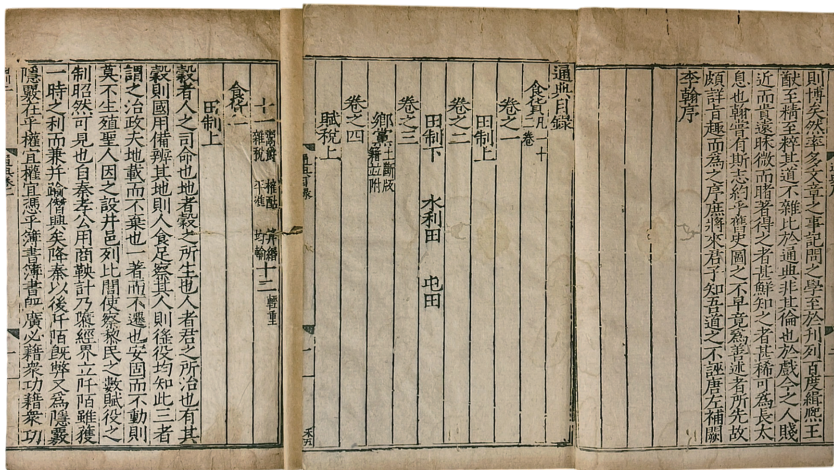 則博矣然率多文章之事記問之學至於刊列百度緝熙王
猷至精至粹其道不雜比於通典非其倫也於戲今之人賤
近而貴遠昧微而睹著得之者甚鮮知之者甚稀可為長太
息也翰嘗有斯志約乎舊史圖之不早竟為善述者所先故
頗詳旨趣而為之序庶將來君子知吾道之不誣唐左補闕
李翰序
通典目錄
食貨凡一十二卷
卷之一
田制上
卷之二
田制下 水利田 屯田
卷之三
鄉黨土斷版籍並附
卷之四
賦稅上
十一鬻爵 榷酤 算緡 雜稅 平準 均輸 十二輕重
食貨一
田制上
穀者人之司命也地者穀之所生也人者君之所治也有其
穀則國用備辨其地則人食足察其人則徭役均知此三者
謂之治政夫地載而不棄也一著而不遷也安固而不動則
莫不生殖聖人因之設井邑列比閭使察黎民之數賦役之
制昭然可見也自秦孝公用商鞅計乃隳經界立阡陌雖獲
一時之利而兼并踰僭興矣降秦以後阡陌既弊又為隱覈
隱覈在乎權宜權宜憑乎簿書簿書既廣必藉衆功藉衆功